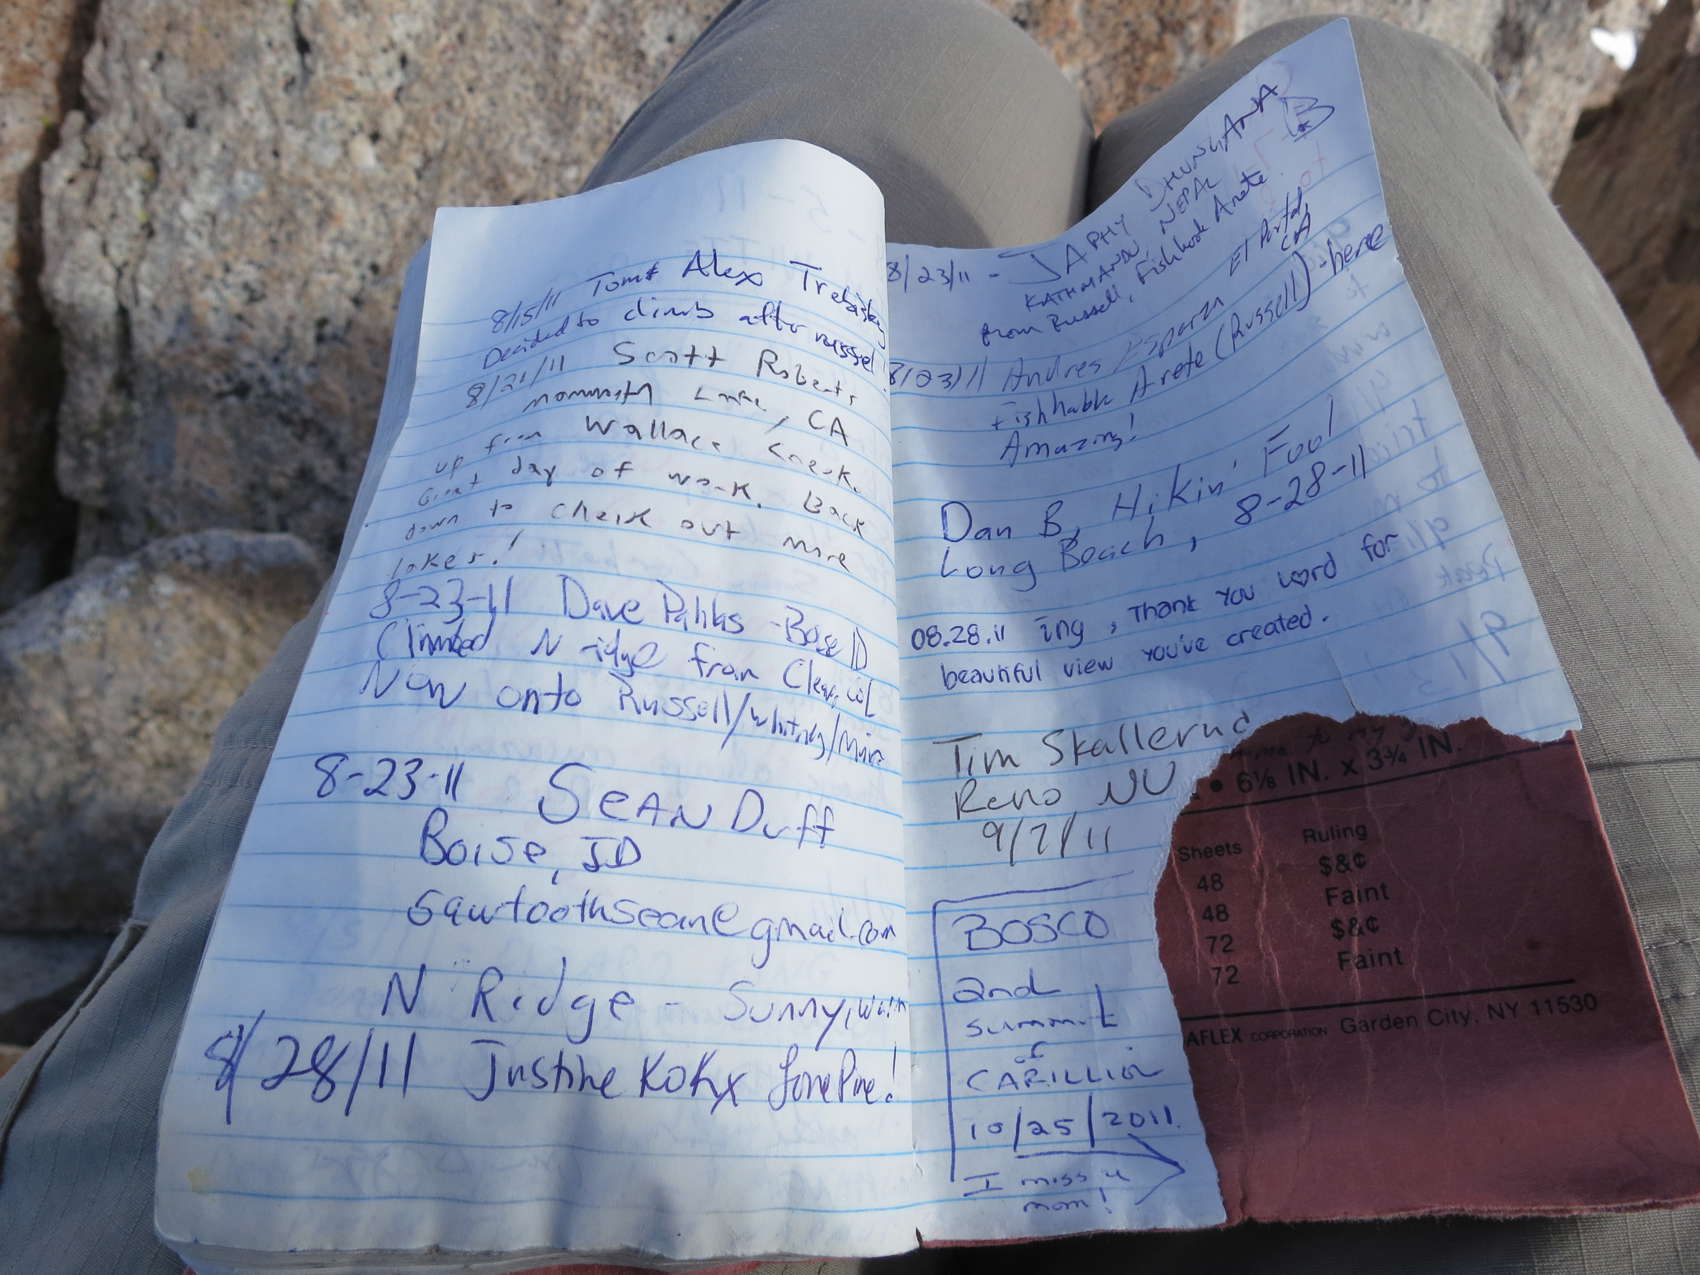 8/15/11 Tom & Alex Trebisky
Decided to climb after russel
8/21/11 Scott Roberts
mammoth Lake, CA
up from Wallace Creek.
Great day of work. Back
down to check out more
lakes!
8-23-11 Dave Pahlas - Boise ID
Climbed N ridge from Cleaver Col
Now onto Russell/Whitney/Muir
8-23-11 SEAN Duff
Boise, ID
sawtoothsean@gmail.com
N Ridge - Sunny, warm
8/28/11 Justine Lone Pine!
8/23/11 - JAPHY DHUNGANA
KATHMANDU, NEPAL
from Russell, Fishhook Arete
8/23/11 Andres Esparza El Portal, CA
Fishhook Arete (Russell) - here
Amazing!
Dan B, Hikin' Fool
Long Beach, 8-28-11
08.28.11 ing, Thank you Lord for
beautiful view you've created.
Tim Skallerud
Reno NV
9/7/11
BOSCO
2nd
summit
of
CARILLION
10/25/2011.
I miss u
mom!
• 6⅛ IN. x 3¾ IN.
Sheets Ruling
48 $&¢
48 Faint
72 $&¢
72 Faint
AFLEX CORPORATION Garden City, NY 11530